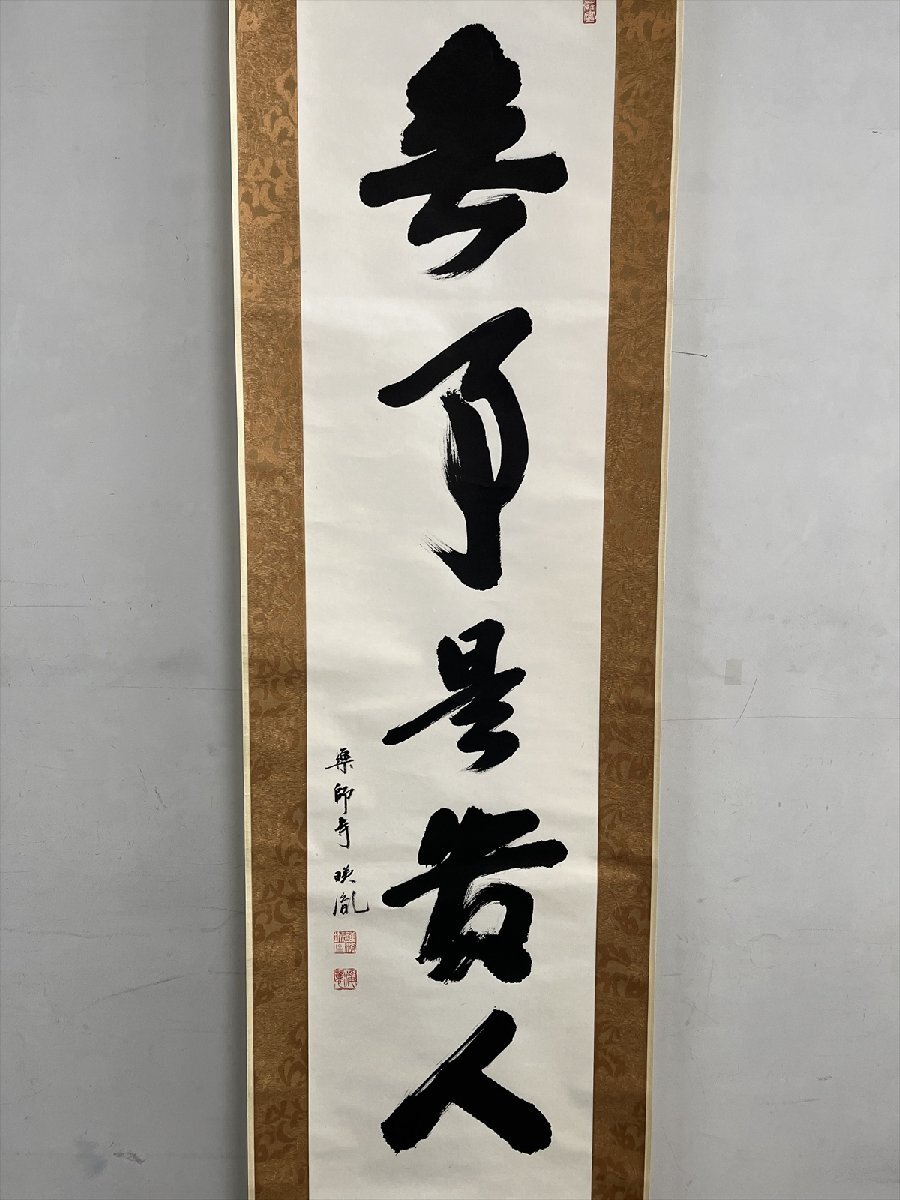 無事是貴人
薬師寺 暎胤